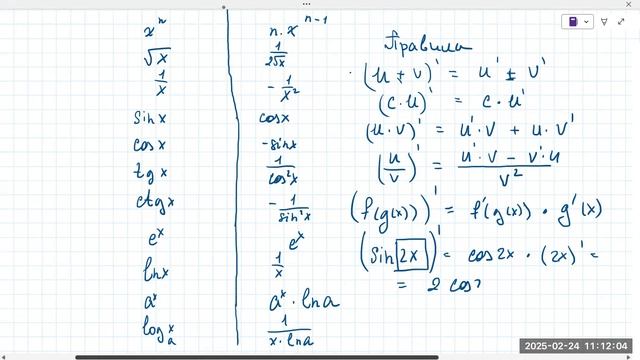 xⁿ n·xⁿ⁻¹
√x 1/(2√x)
1/x -1/x²
sinx cosx
cosx -sinx
tgx 1/cos²x
ctgx -1/sin²x
eˣ eˣ
lnx 1/x
aˣ aˣ·lna
logₐx 1/(x·lna)
Правила
(u ± v)' = u' ± v'
(c·u)' = c·u'
(u·v)' = u'·v + u·v'
(u/v)' = (u'·v - v'·u)/v²
(f(g(x)))' = f'(g(x))·g'(x)
(sin 2x)' = cos2x·(2x)' =
= 2 cos
2025-02-24 11:12:04